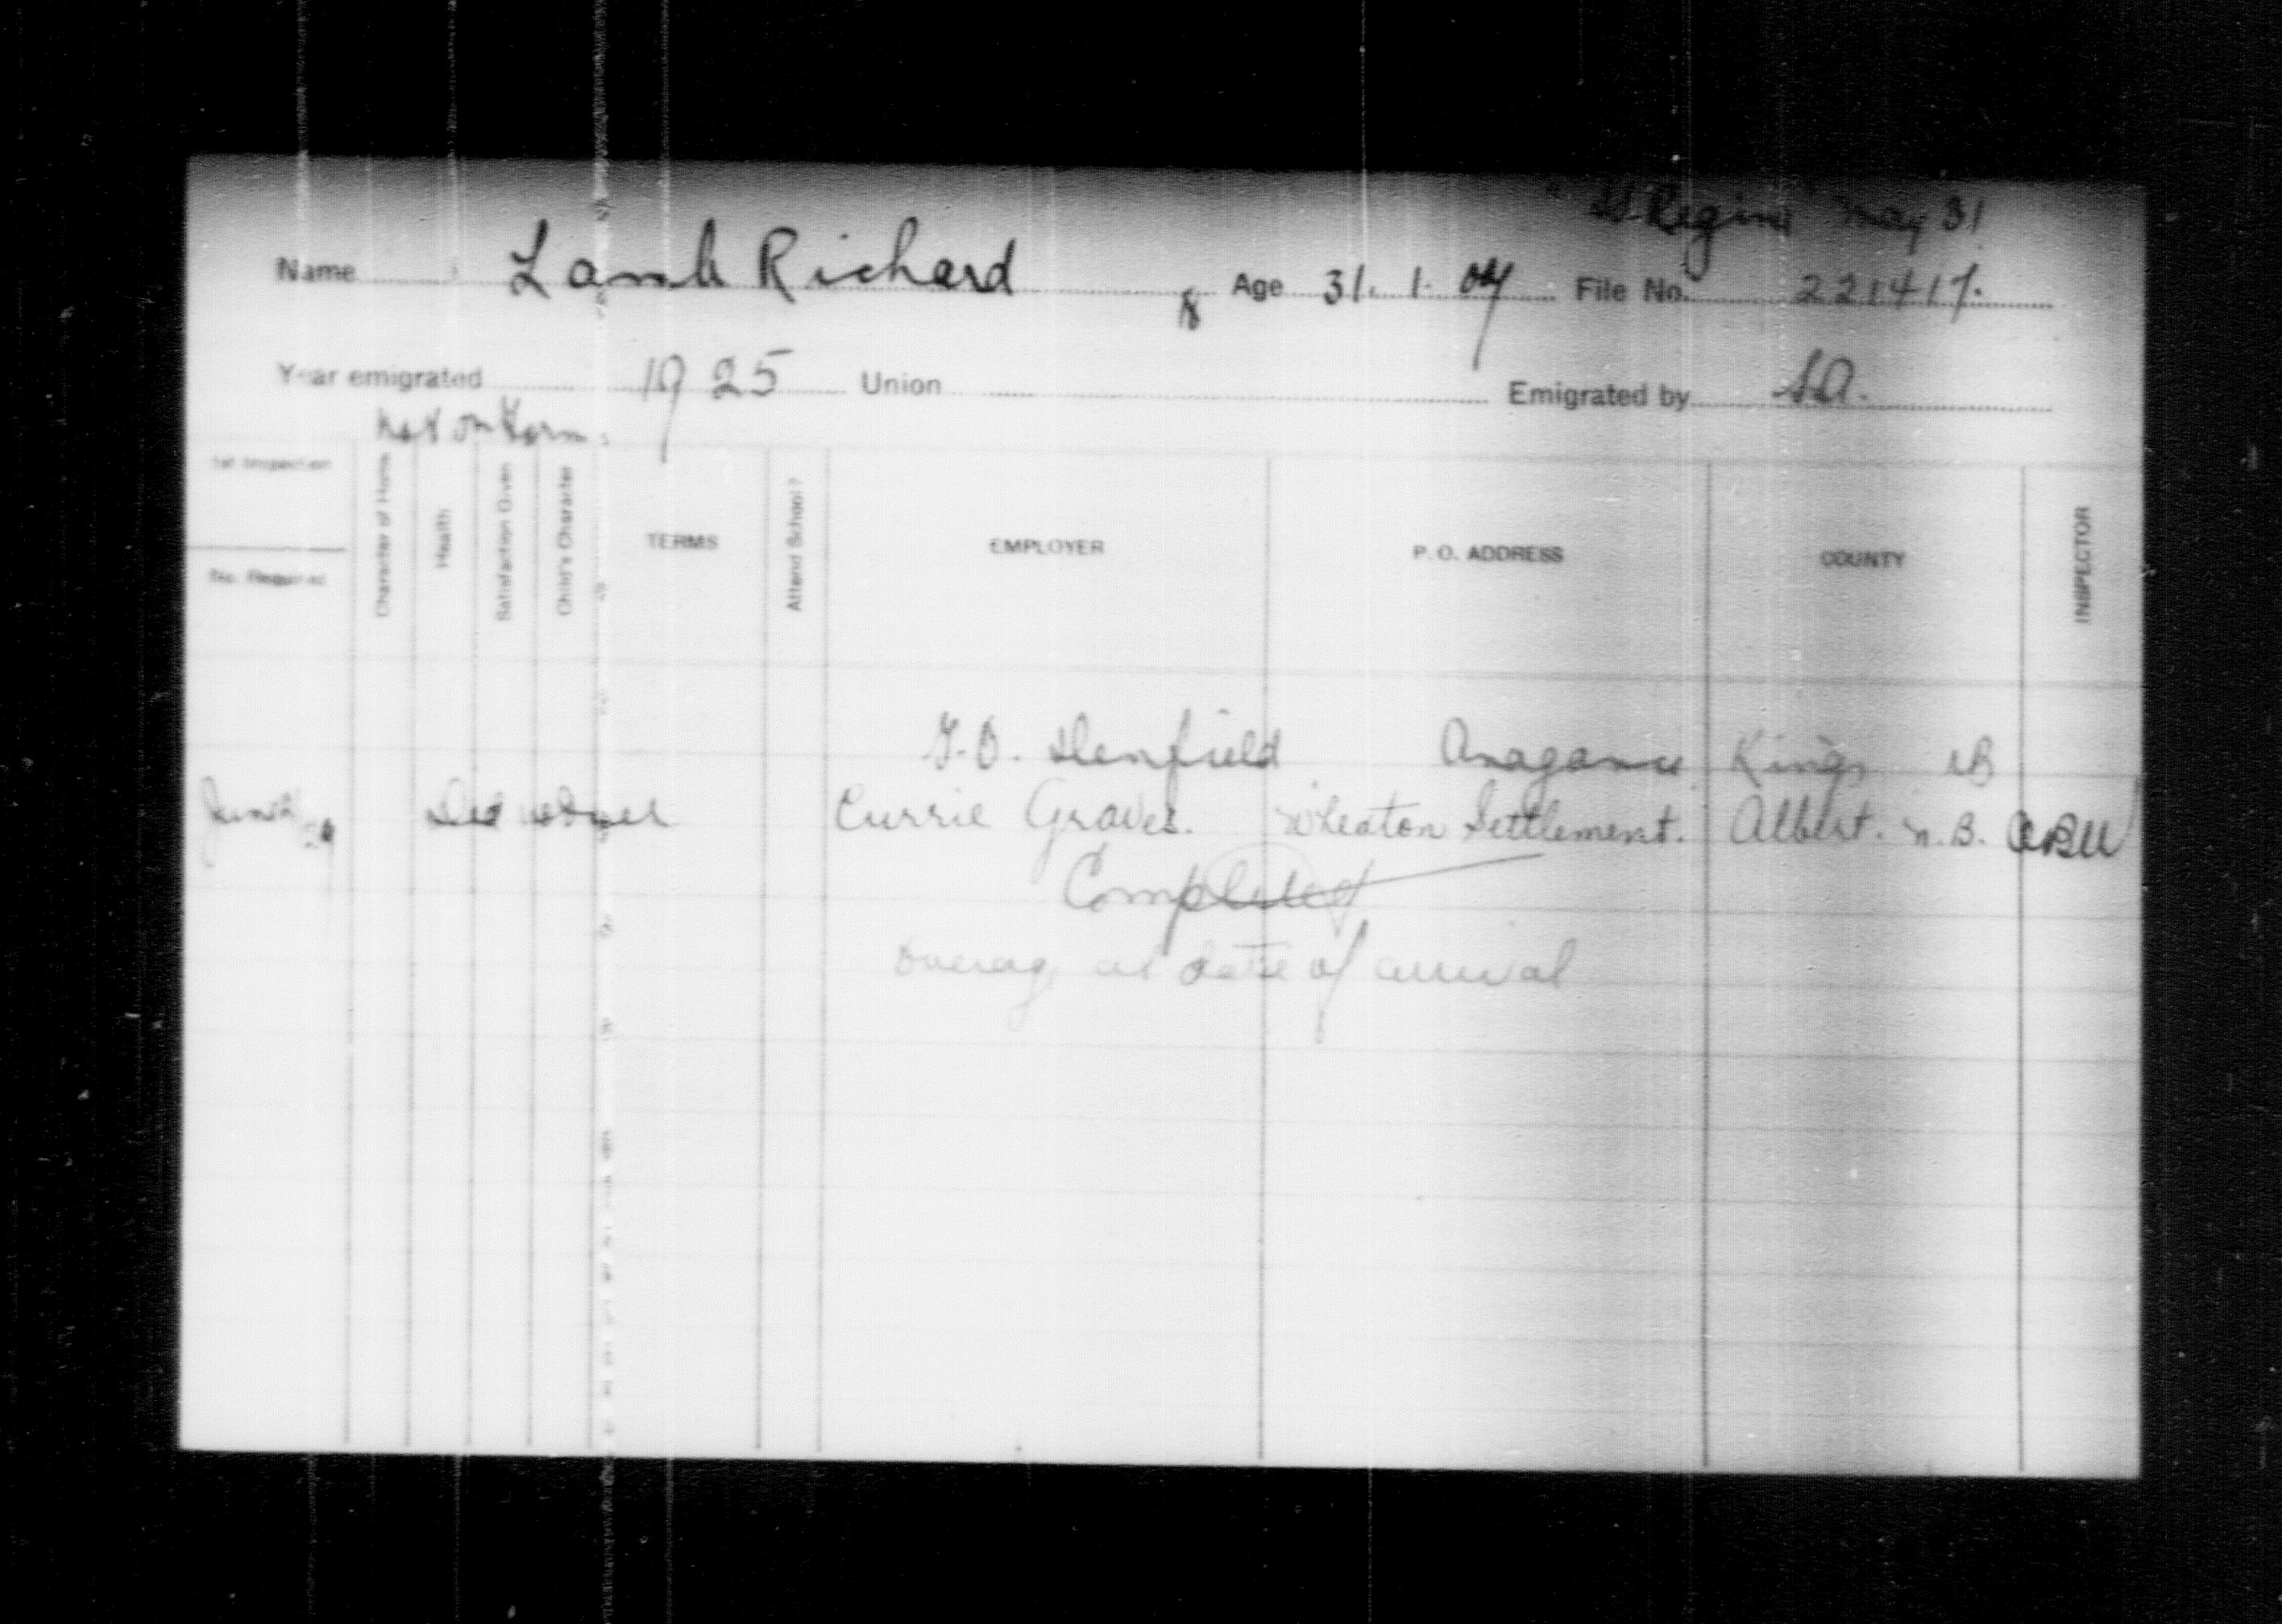 "SS Regina" May 31
Name Lamb Richard Age 31. 1. 07 File No. 221417.
18
Year emigrated 1925 Union Emigrated by S.A.
Not on Form
1st Inspection
No. Required
Character of Home
Health
Satisfaction Given
Child's Character
TERMS
Attend School?
EMPLOYER
P. O. ADDRESS
COUNTY
INSPECTOR
Kings NB
Currie Graves. Wheaton Settlement. Albert. N.B.
Completed
Overage at date of arrival